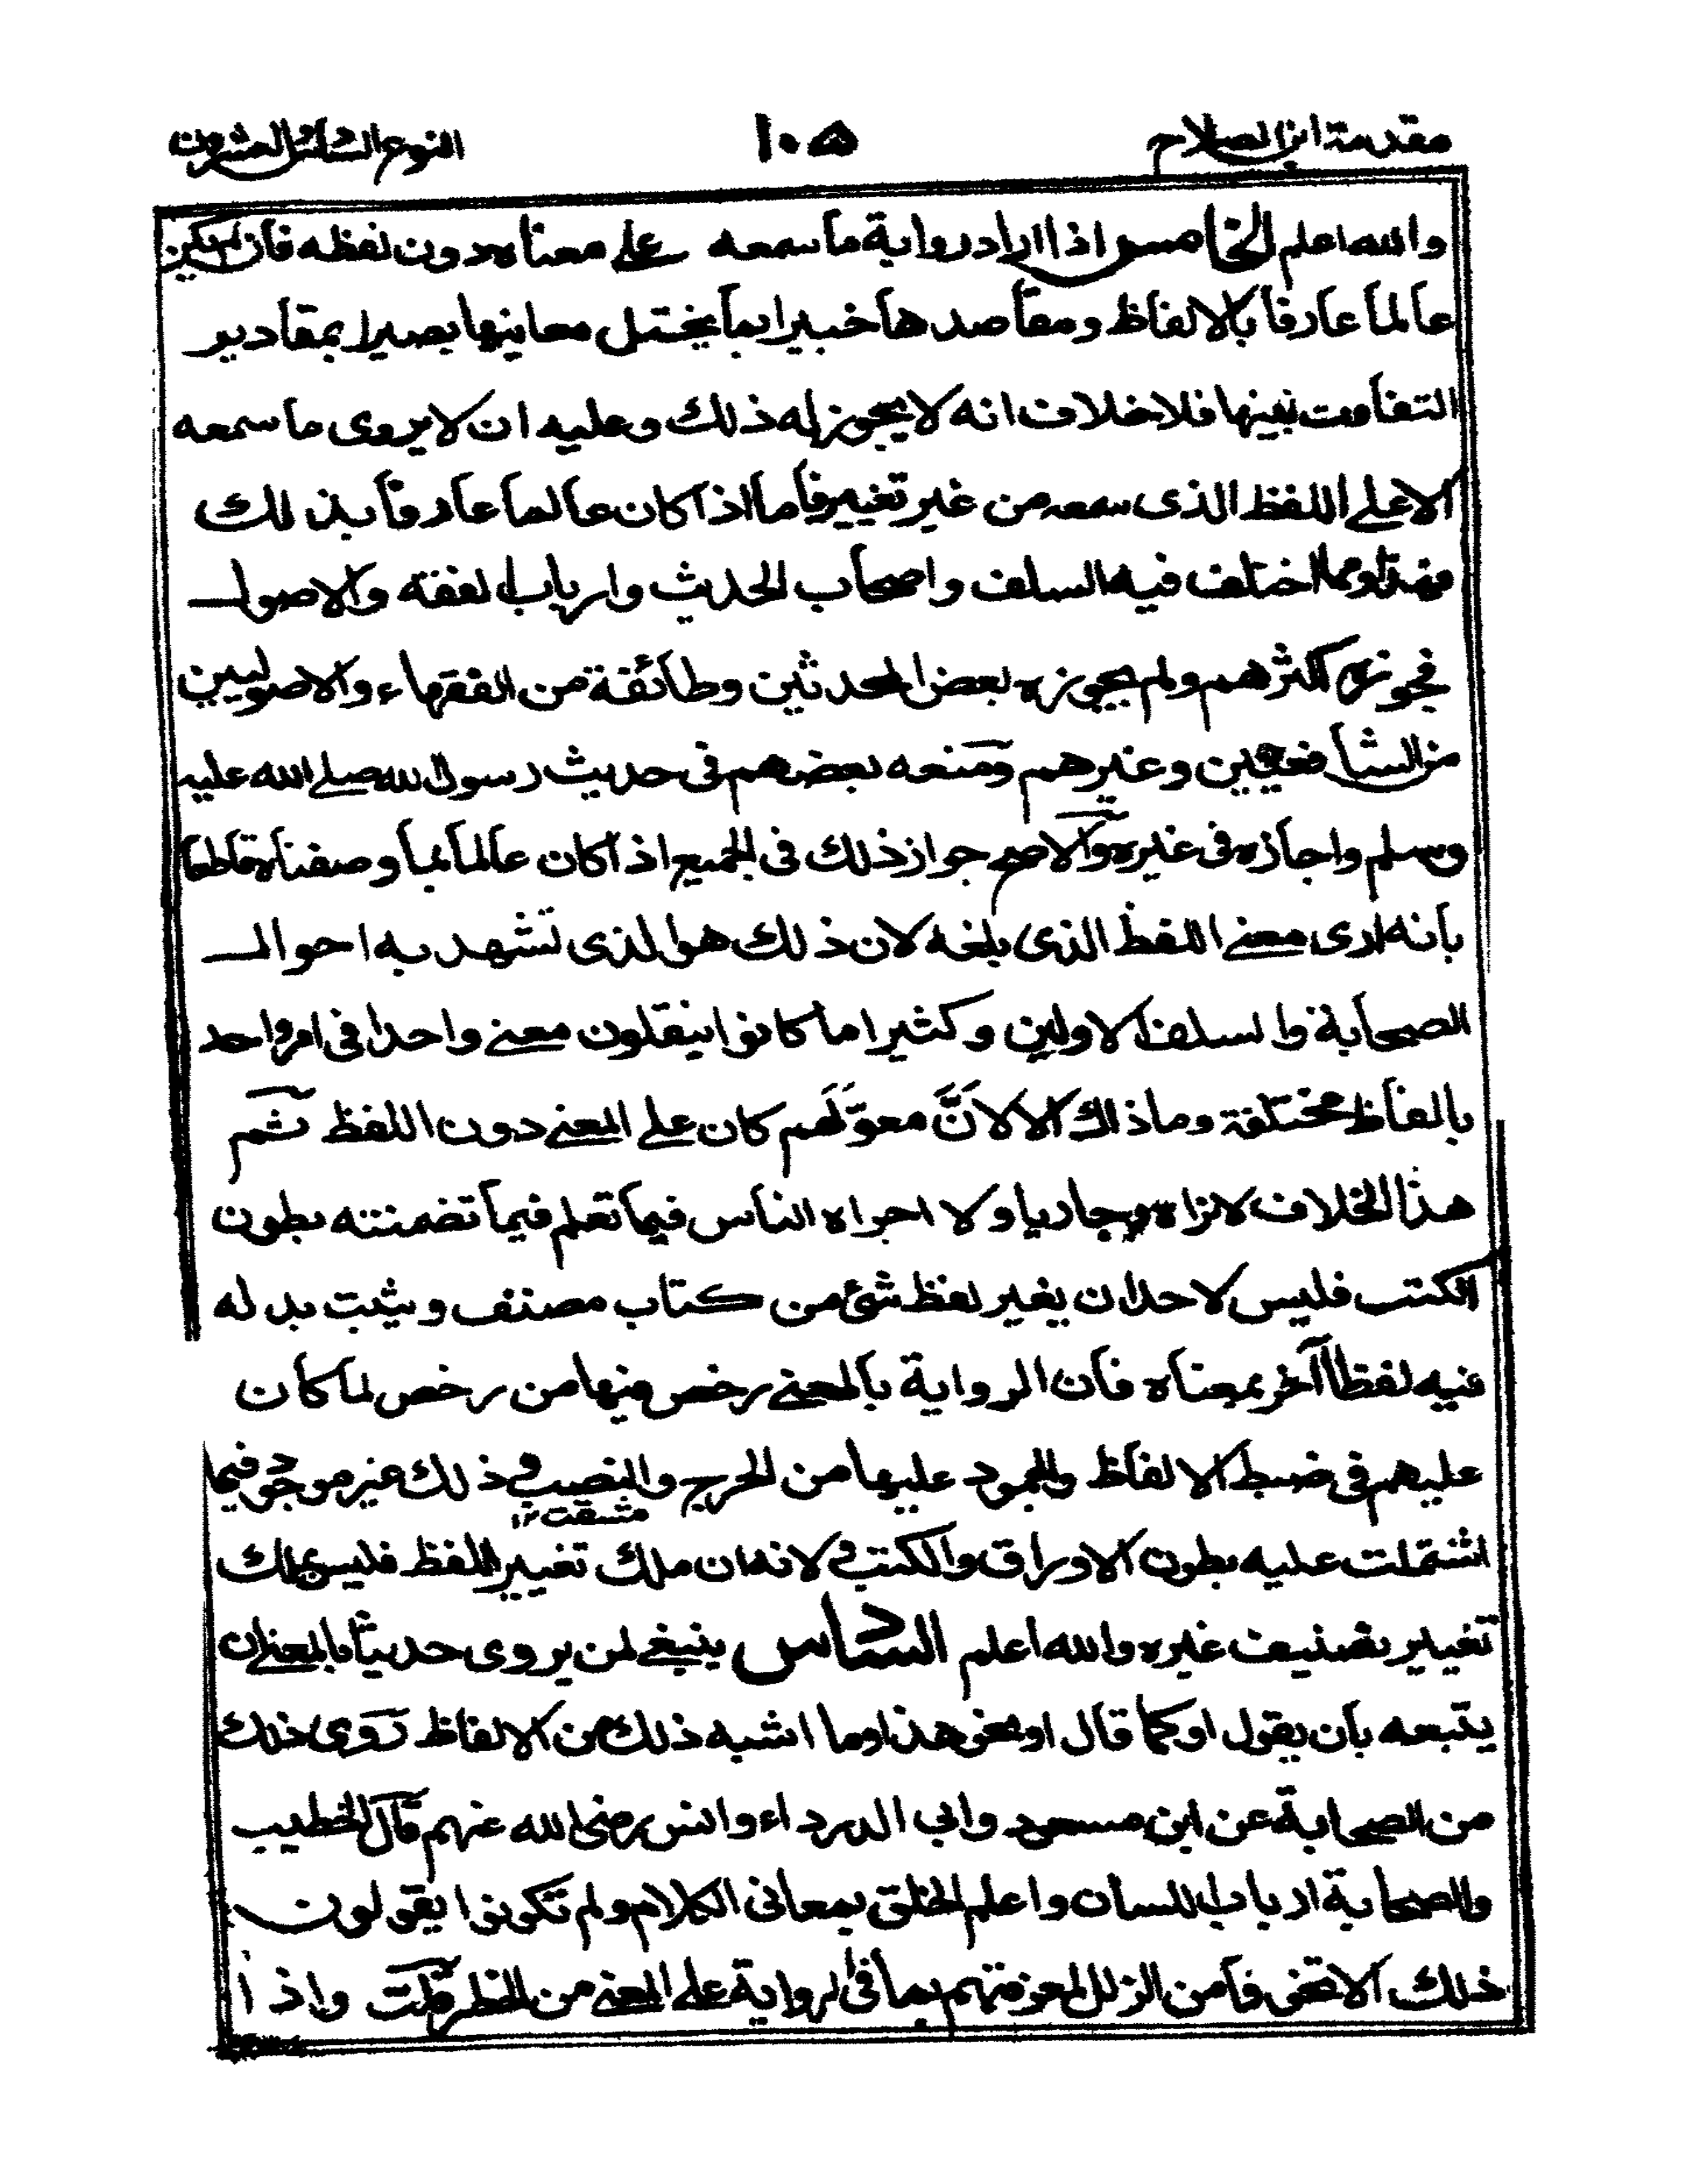 مقدمة ابن الصلاح ١٠٥ النوع السادس العشرون
والله اعلم الخامس اذا اراد رواية ما سمعه على معناه دون لفظه فان لم يكن
عالما عارفا بالالفاظ ومقاصدها خبيرا بما يختل معانيها بصيرا بمقادير
التفاوت بينها فلا خلاف انه لا يجوز له ذلك وعليه ان لا يروى ما سمعه
الا على اللفظ الذى سمعه من غير تغيير فاما اذا كان عالما عارفا بذلك
فهذا مما اختلف فيه السلف واصحاب الحديث وارباب الفقه والاصول
فجوزه اكثرهم ولم يجوزه بعض المحدثين وطائفة من الفقهاء والاصوليين
من الشافعيين وغيرهم ومنعه بعضهم فى حديث رسول الله صلى الله عليه
وسلم واجازه فى غيره والاصح جواز ذلك فى الجميع اذا كان عالما بما وصفناه قاطعا
بانه ادى معنى اللفظ الذى بلغه لان ذلك هو الذى تشهد به احوال
الصحابة والسلف الاولين وكثيرا ما كانوا ينقلون معنى واحدا فى امر واحد
بالفاظ مختلفة وما ذاك الا لانَّ معوّلَهم كان على المعنى دون اللفظ ثم
هذا الخلاف لا نراه جاريا ولا اجراه الناس فيما تعلم فيما تضمنته بطون
الكتب فليس لاحد ان يغير لفظ شئ من كتاب مصنف ويثبت بدله
فيه لفظا آخر بمعناه فان الرواية بالمعنى رخص فيها من رخص لما كان
عليهم فى ضبط الالفاظ والجمود عليها من الحرج والنصب وذلك غير موجود فيما
مشقت ١٢
اشتملت عليه بطون الاوراق والكتب ولانه ان ملك تغيير اللفظ فليس يملك
تغيير تصنيف غيره والله اعلم السادس ينبغى لمن يروى حديثا بالمعنى ان
يتبعه بان يقول او كما قال او نحو هذا وما اشبه ذلك من الالفاظ روى ذلك
من الصحابة عن ابن مسعود وابى الدرداء وانس رضى الله عنهم قال الخطيب
والصحابة ارباب اللسان واعلم الخلق بمعانى الكلام ولم تكونوا يقولون
ذلك الا تخوفا من الزلل لمعرفتهم بما فى الرواية على المعنى من الخطر قلت واذا